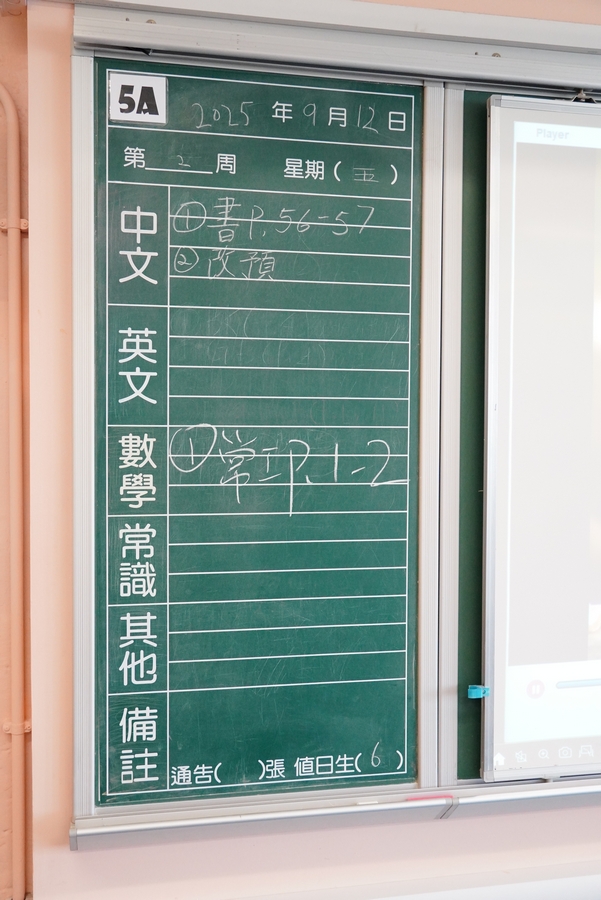 5A 2025年9月12日
第2周 星期(五)
中文
①書P.56-57
②改預
英文
數學
①常工P.1-2
常識
其他
備註
通告( )張 值日生(6)
Player